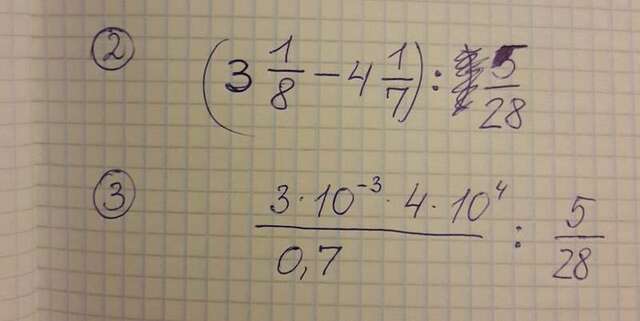 ② (3 1/8 − 4 1/7) : 5/28
③ (3 · 10⁻³ · 4 · 10⁴)/0,7 : 5/28